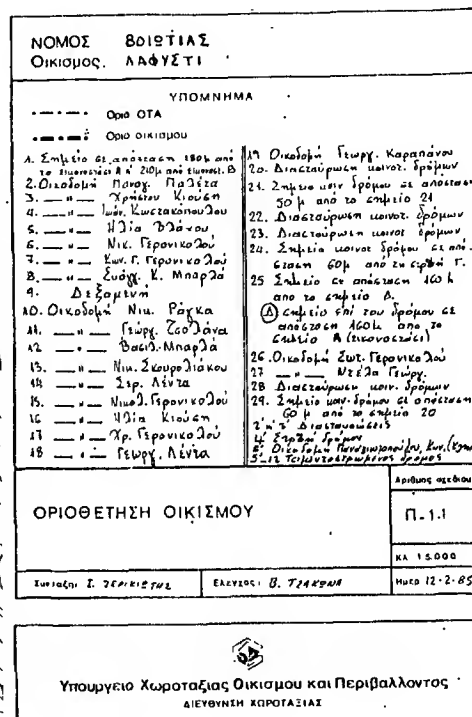 ΝΟΜΟΣ ΒΟΙΩΤΙΑΣ
Οικισμος. ΛΑΦΥΣΤΙ
ΥΠΟΜΝΗΜΑ
Οριο ΟΤΑ
Οριο οικισμου
1. Σημείο σε απόσταση 180μ από
το εικονοστάσι Α κ' 210μ από εικονοστ. Β
2. Οικοδομή Παναγ. Παλέτα
3. —"— Χρήστου Κιούση
4. —"— Ιωάν. Κωστακόπουλου
5. —"— Ηλία Βλάχου
6. —"— Νικ. Γερονικολού
7. —"— Κων. Γ. Γερονικολού
8. —"— Ευάγγ. Κ. Μπαρλά
9. Δεξαμενή
10. Οικοδομή Νικ. Ράγκα
11. —"— Γεώργ. Τσολάνα
12 —"— Βασιλ. Μπαρλά
13. —"— Νικ. Σκουρολιάκου
14 —"— Σερ. Λέντα
15 —"— Νικολ. Γερονικολού
16 —"— Ηλία Κιούση
17 —"— Χρ. Γερονικολού
18 —"— Γεωργ. Λέντα
19 Οικοδομή Γεωργ. Καραπάνου
20. Διασταύρωση κοινοτ. δρόμων
21. Σημείο κοιν δρόμου σε απόσταση
50 μ από το σημείο 21
22. Διασταύρωση κοινοτ. δρόμων
23. Διασταύρωση κοινοτ δρόμων
24. Σημείο κοινοτ δρόμου σε από.
σταση 60μ από τη στροφή Γ.
25 Σημείο σε απόσταση 160 μ
απο το σημείο Δ.
Δ σημείο επί του δρόμου σε
απόσταση 160μ απο το
σημείο Α (εικονοστάσι)
26. Οικοδομή Σωτ. Γερονικολού
27 —"— Ντέλα Γεώργ.
28 Διασταύρωση κοιν. δρόμων
29. Σημείο κοιν. δρόμου σε απόσταση
60 μ από το σημείο 20
Διασταυρώσεις
Στροφή δρόμου
Οικοδομή Παναγιωτοπούλου, Κων.
Τσιμεντοστρωμένος δρόμος
ΟΡΙΟΘΕΤΗΣΗ ΟΙΚΙΣΜΟΥ
Αριθμος σχεδιου
Π.1.1
ΚΛ 1:5.000
Συνταξη: Σ. ΤΕΡΙΚΙΩΤΗΣ
Ελεγχος: Β. ΤΖΑΚΩΝΑ
Ημερ 12-2-85
Υπουργειο Χωροταξιας Οικισμου και Περιβαλλοντος
ΔΙΕΥΘΥΝΣΗ ΧΩΡΟΤΑΞΙΑΣ